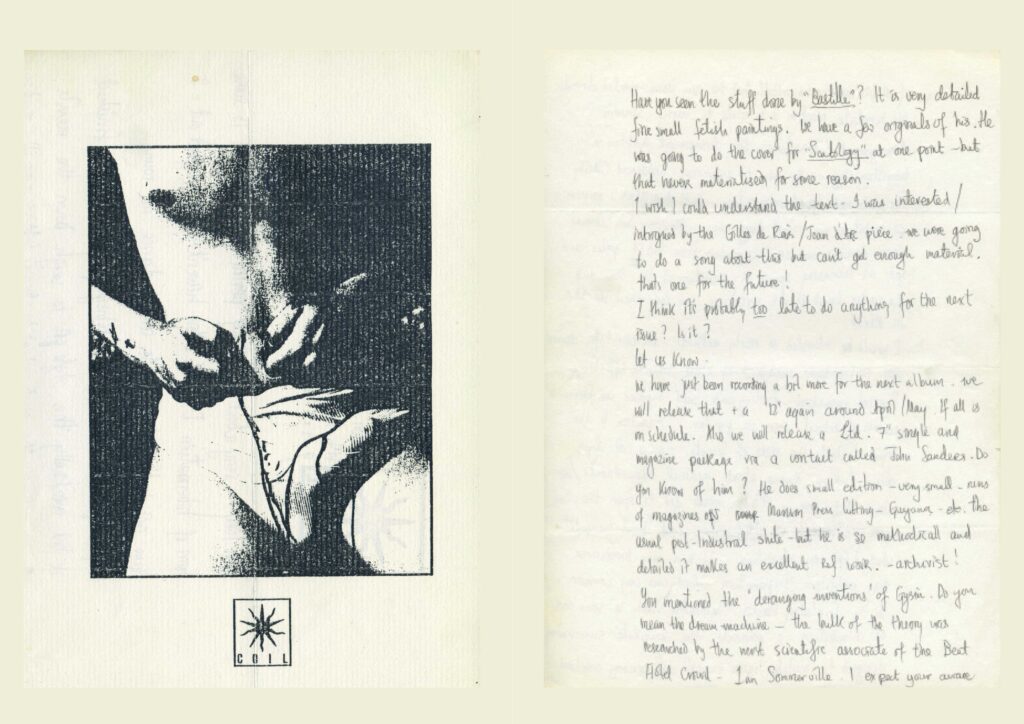 COIL
Have you seen the stuff done by "Bastille"? It is very detailed
fine small fetish paintings. We have a few originals of his. He
was going to do the cover for "Scatology" at one point - but
that never materialised for some reason.
I wish I could understand the text. I was interested/
intrigued by the Gilles de Rais/Joan d'Arc piece. we were going
to do a song about this but can't get enough material.
thats one for the future!
I think it's probably too late to do anything for the next
issue? Is it?
let us know.
We have just been recording a bit more for the next album. we
will release that + a 12" again around April/May If all is
on schedule. Also we will release a Ltd. 7" single and
magazine package via a contact called John Sanders. Do
you know of him? He does small edition - very small - runs
of magazines of Manson Press Cutting - Guyana - etc. the
usual post-Industrial shite - but he is so methodicall and
detailed it makes an excellent Ref work. - archivist!
You mentioned the 'deranging inventions' of Gysin. Do you
mean the dream-machine - the bulk of the theory was
researched by the most scientific associate of the Beat
Hotel Crowd - Ian Sommerville. I expect your aware